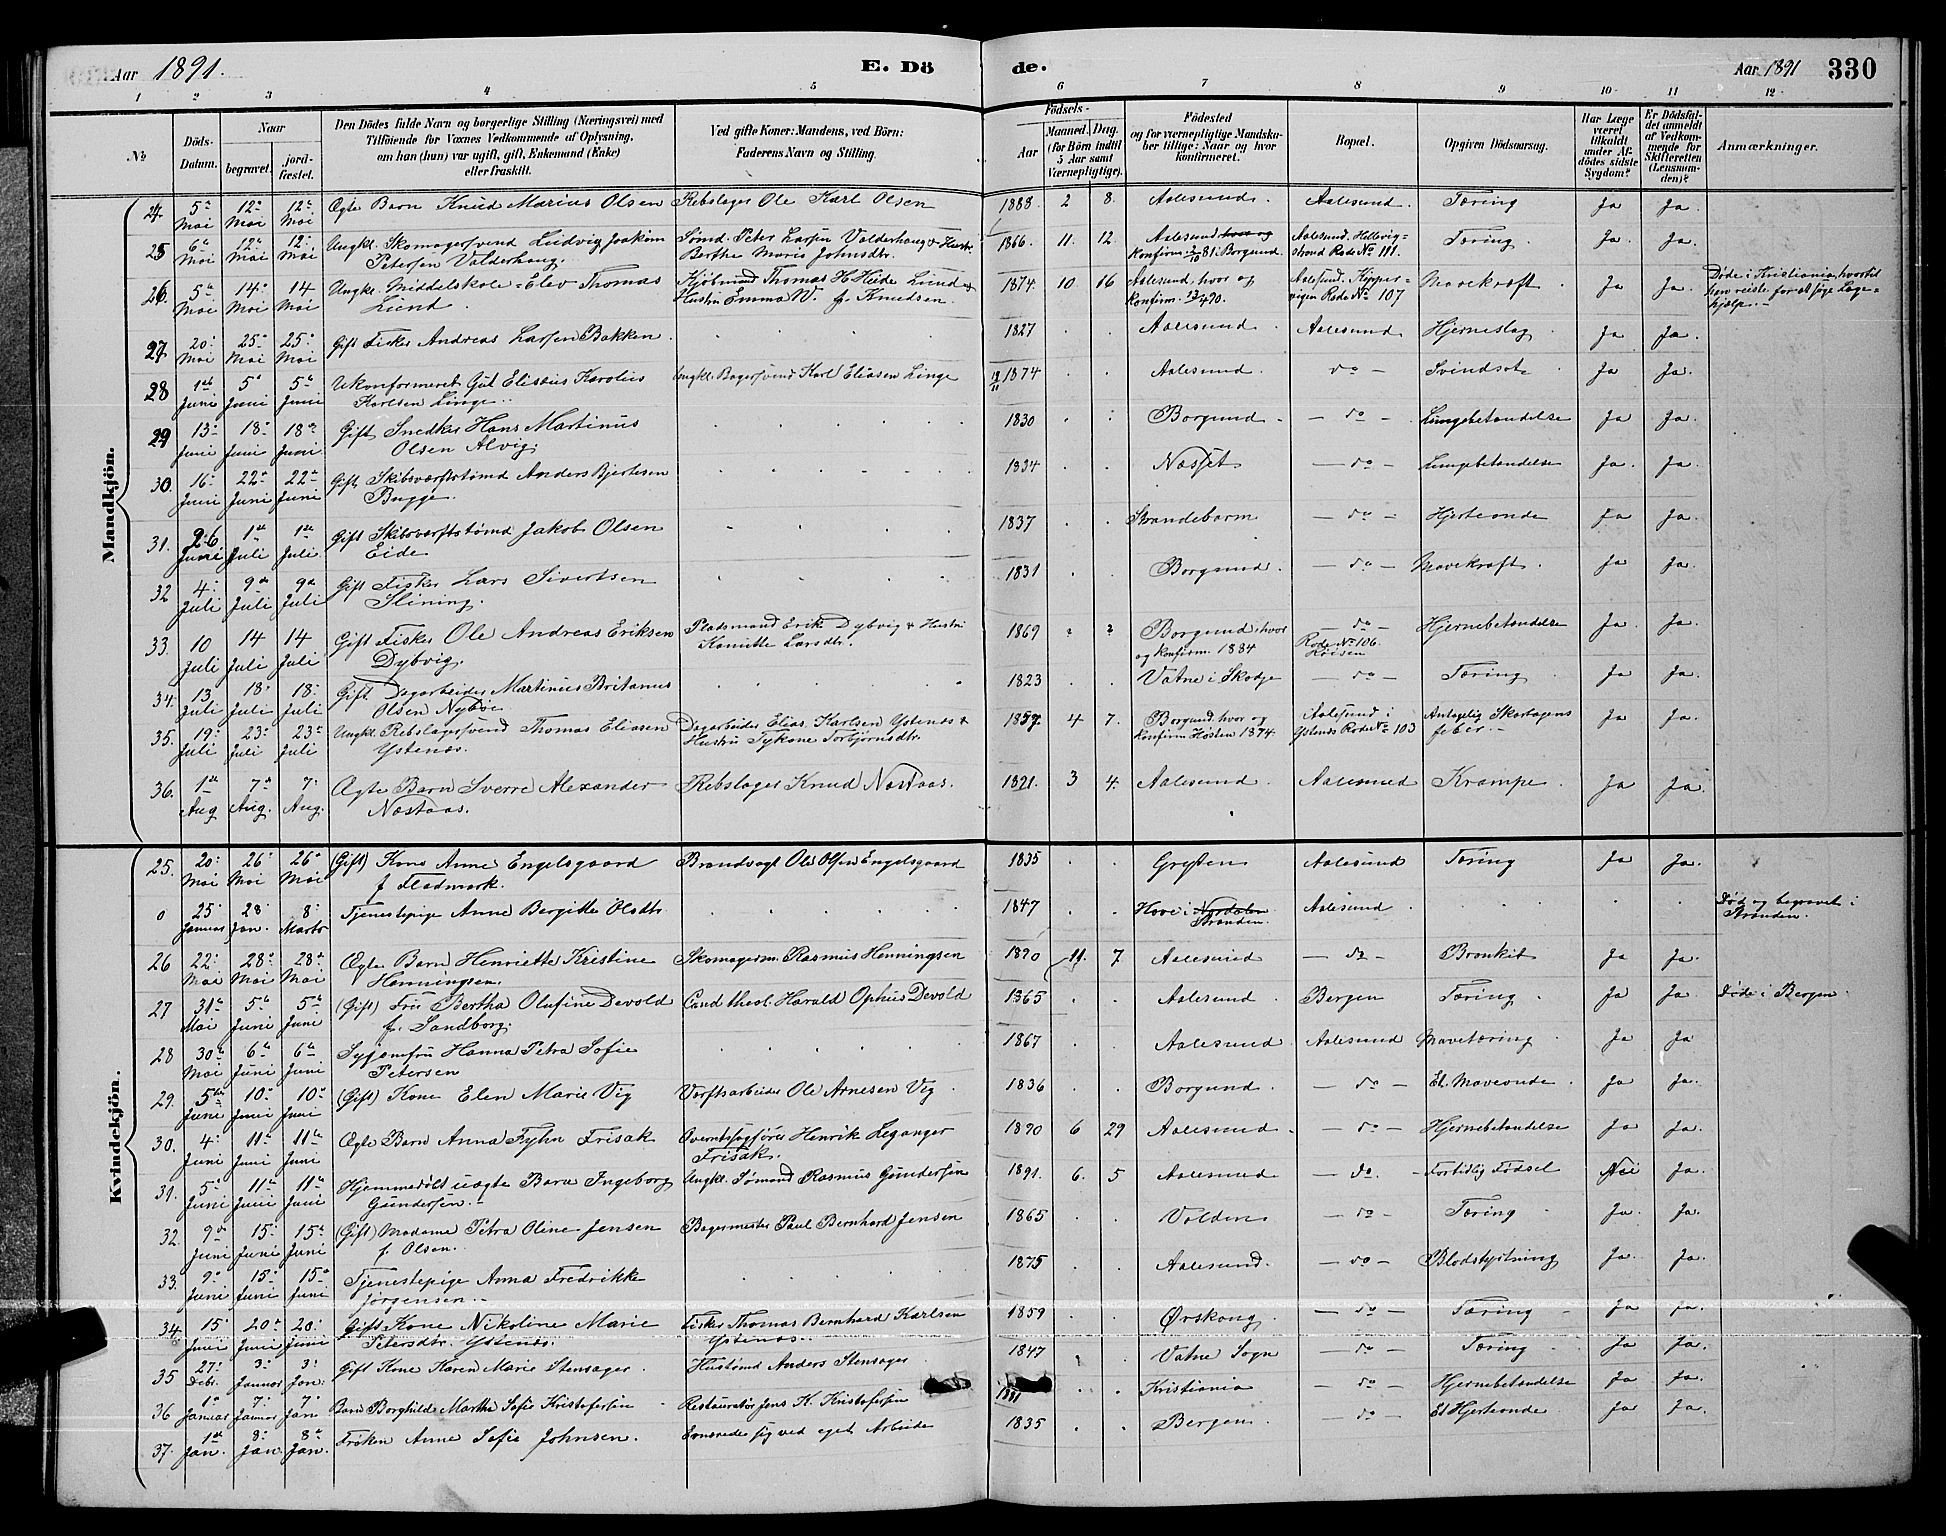 Aar 1891. E. Dö de. Aar 1891 330
1 2 3 4 5 6 7 8 9 10 11 12
No
Döds-Datum.
Naar begravet. jordfæstet.
Den Dödes fulde Navn og borgerlige Stilling (Næringsvei) med
Tilföiende for Voxnes Vedkommende af Oplysning,
om han (hun) var ugift, gift, Enkemand (Enke)
eller fraskilt.
Ved gifte Koner: Mandens, ved Börn:
Faderens Navn og Stilling.
Födsels-
Aar Maaned. Dag.
(for Börn indtil
5 Aar samt
Værnepligtige).
Födested
og for værnepligtige Mandskaber tillige: Naar og hvor
konfirmeret.
Bopæl.
Opgiven Dödsaarsag.
Har Læge
været
tilkaldt
under Afdödes sidste
Sygdom?
Er Dödsfaldet anmeldt
af Vedkommende for
Skifteretten
(Lensmanden)?
Anmærkninger.
Mandkjön.
24. 5te Mai 12te Mai 12te Mai Ægte Barn Knud Marius Olsen Rebslager Ole Karl Olsen 1888. 2 8. Aalesund. Aalesund. Tæring Ja Ja.
25 6te Mai 12te Mai 12te Mai Ungkl. Skomagersvend Ludvig Joakim Sömd. Peter Larsen Valderhaug & Hustr. 1866. 11. 12. Aalesund hvor og Aalesund. Hellvig- Tæring. Ja. Ja.
Petersen Valderhaug. Berthe Marie Johnsdtr. Konfirm. 2/10 81. Borgund. strand Rode No 111.
26. 5te Mai 14de Mai 14 Mai Ungkl. Middelskole-Elev Thomas Kjöbmand Thomas H. Heide Lund & 1874. 10 16 Aalesund, hvor og Aalesund. Kipper- Mavekræft. Ja Ja. Döde i Kristiania, hvortil
Lund. Hustru Emma W. f. Knudsen. konfirm. 13/4 90. vigen Rode No 107 han reiste for at söge Læge-
hjælp.
27. 20de Mai 25de Mai 25de Mai Gift Fisker Andreas Larsen Bakken. 1827 Aalesund. Aalesund Hjerneslag Ja Ja.
28 1ste Juni 5te Juni 5te Juni Ukonfirmeret Gut Elisæus Karolius Ungkl. Bagersvend Karl Eliasen Linge 1874 Aalesund. do Svindsot. Ja Ja.
Karlsen Linge.
29 13de Juni 18de Juni 18de Juni Gift Snedker Hans Martinus 1830 Borgund. do Lungebetændelse Ja Ja.
Olsen Alvig.
30. 16de Juni 22de Juni 22de Juni Gift. Skibsværftstömd Anders Bjertesen 1834 Næsset do Lungebetændelse Ja. Ja.
Bugge.
31. 26 Juni 1ste Juli 1ste Juli Gift Skibsværftstömd Jakob Olsen 1837 Strandebarm do Hjerteonde Ja Ja.
Eide
32 4de Juli 9de Juli 9de Juli Gift Fisker Lars Sivertsen 1831 Borgund. do Mavekræft. Ja Ja.
Slining.
33. 10 Juli 14 Juli 14 Juli Gift Fisker Ole Andreas Eriksen Pladsmand Erik Dybvig & Hustru 1869 ? ? Borgund, hvor do Hjernebetændelse Ja Ja.
Dybvig. Larsdtr. og konfirm. 1884 Rode No 106.
34. 13 Juli 18de Juli 18de Juli Gift Dagarbeider Martinus Britanus 1823 Vatne i Skodje do Tæring. Ja Ja.
Olsen Nyböe
35. 19de Juli 23de Juli 23de Juli Ungkl. Rebslagersvend Thomas Eliasen Dagarbeider Elias Karlsen Ystenæs & 1859. 4 7. Borgund. hvor og Aalesund i Antagelig Skarlagens Ja Ja.
Ystenæs. Hustru Torbjörnsdtr. konfirm. Hösten 1874. Ystenæs Rode No 103 feber.
36. 1ste Aug 7de Aug. 7de Aug. Ægte Barn Sverre Alexander Rebslager Knud Næstaas. 1891. 3 4. Aalesund Aalesund Krampe Ja Ja.
Næstaas.
Kvindekjön.
25. 20de Mai 26de Mai 26de Mai (Gift) Kone Anne Engelsgaard Brandvagt Ole Olsen Engelsgaard 1835 Grytten Aalesund Tæring Ja Ja.
f. Fladmark.
0 25de Januar 28de Jan. 8de Marts Tjenestepige Anne Bergitte Olsdtr. 1847 Hove i Nordalen Aalesund Död og begravet i
Stranden. Stranden.
26 22de Mai 28de Mai 28de Mai Ægte Barn Henriette Kristine Skomagerm. Rasmus Henningsen 1890 11. 7. Aalesund do Bronkit Ja Ja.
Henningsen.
27 31te Mai 5te Juni 5te Juni (Gift) Frue Bertha Olufine Devold Cand theol. Harald Ophus Devold 1865 Aalesund. Bergen Tæring. Ja Ja. Döde i Bergen.
f. Sandborg.
28 30te Mai 6te Juni 6te Juni Syjomfru Hanna Petra Sofie 1867 Aalesund. Aalesund Mavetæring Ja Ja
Petersen
29. 5te Juni 10de Juni 10de Juni (Gift) Kone Elen Marie Vig Værftsarbeider Ole Arnesen Vig 1836 Borgund. do Et Maveonde Ja Ja.
30. 4de Juni 11te Juni 11te Juni Ægte Barn Anna Fyhn Frisak Overretssagförer Henrik Leganger 1890 6 29 Aalesund. do Hjernebetændelse Ja Ja.
Frisak.
31. 5te Juni 11te Juni 11te Juni Hjemmedöbt uægte Barn Ingeborg Ungkl. Sömand Rasmus Gundersen 1891. 6. 5 Aalesund do. Fortidlig Födsel Nei Ja.
Gundersen.
32. 9de Juni 15de Juni 15de Juni (Gift) Madame Petra Oline Jensen Bagermester Paul Bernhard Jensen 1865 Volden do Tæring Ja. Ja.
f. Olsen.
33. 9de Juni 15de Juni 15de Juni Tjenestepige Anna Fredrikke 1875 Aalesund. do Blodstyrtning Ja. Ja.
Jörgensen.
34 15de Juni 20de Juni 20de Juni Gift Kone Nikoline Marie Fisker Thomas Bernhard Karlsen 1859 Ørskoug. do Tæring Ja Ja.
Petersdtr. Ystenæs. Ystenæs.
35 27de Debr. 3de Januar 3de Jan. Gift Kone Karen Marie Stensager. Hustömd Anders Stensager 1847 Vatne Sogn do Tæring Ja Ja.
36 1ste Januar 7de Januar 7de Jan Barn Borghilde Marthe Sofie Kristofersen Restauratör Jens K. Kristofersen Kristiania do Hjernebetændelse Ja Ja.
37. 1ste Jan. 8de Jan. 8de Jan. Fröken Anne Sofie Johnsen. Ernærede sig ved eget Arbeide 1835 Bergen. do Et Hjerteonde Ja Ja.